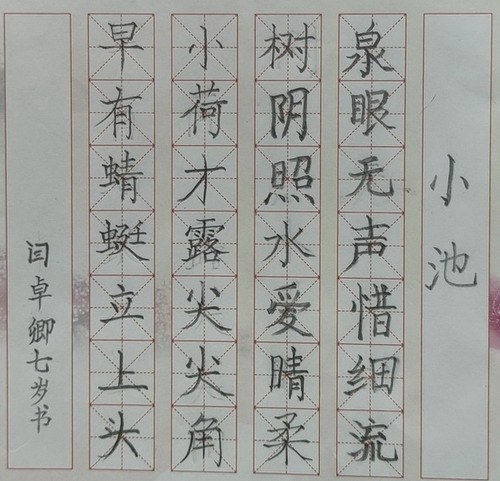 小池
泉眼无声惜细流
树阴照水爱晴柔
小荷才露尖尖角
早有蜻蜓立上头
闫卓卿七岁书